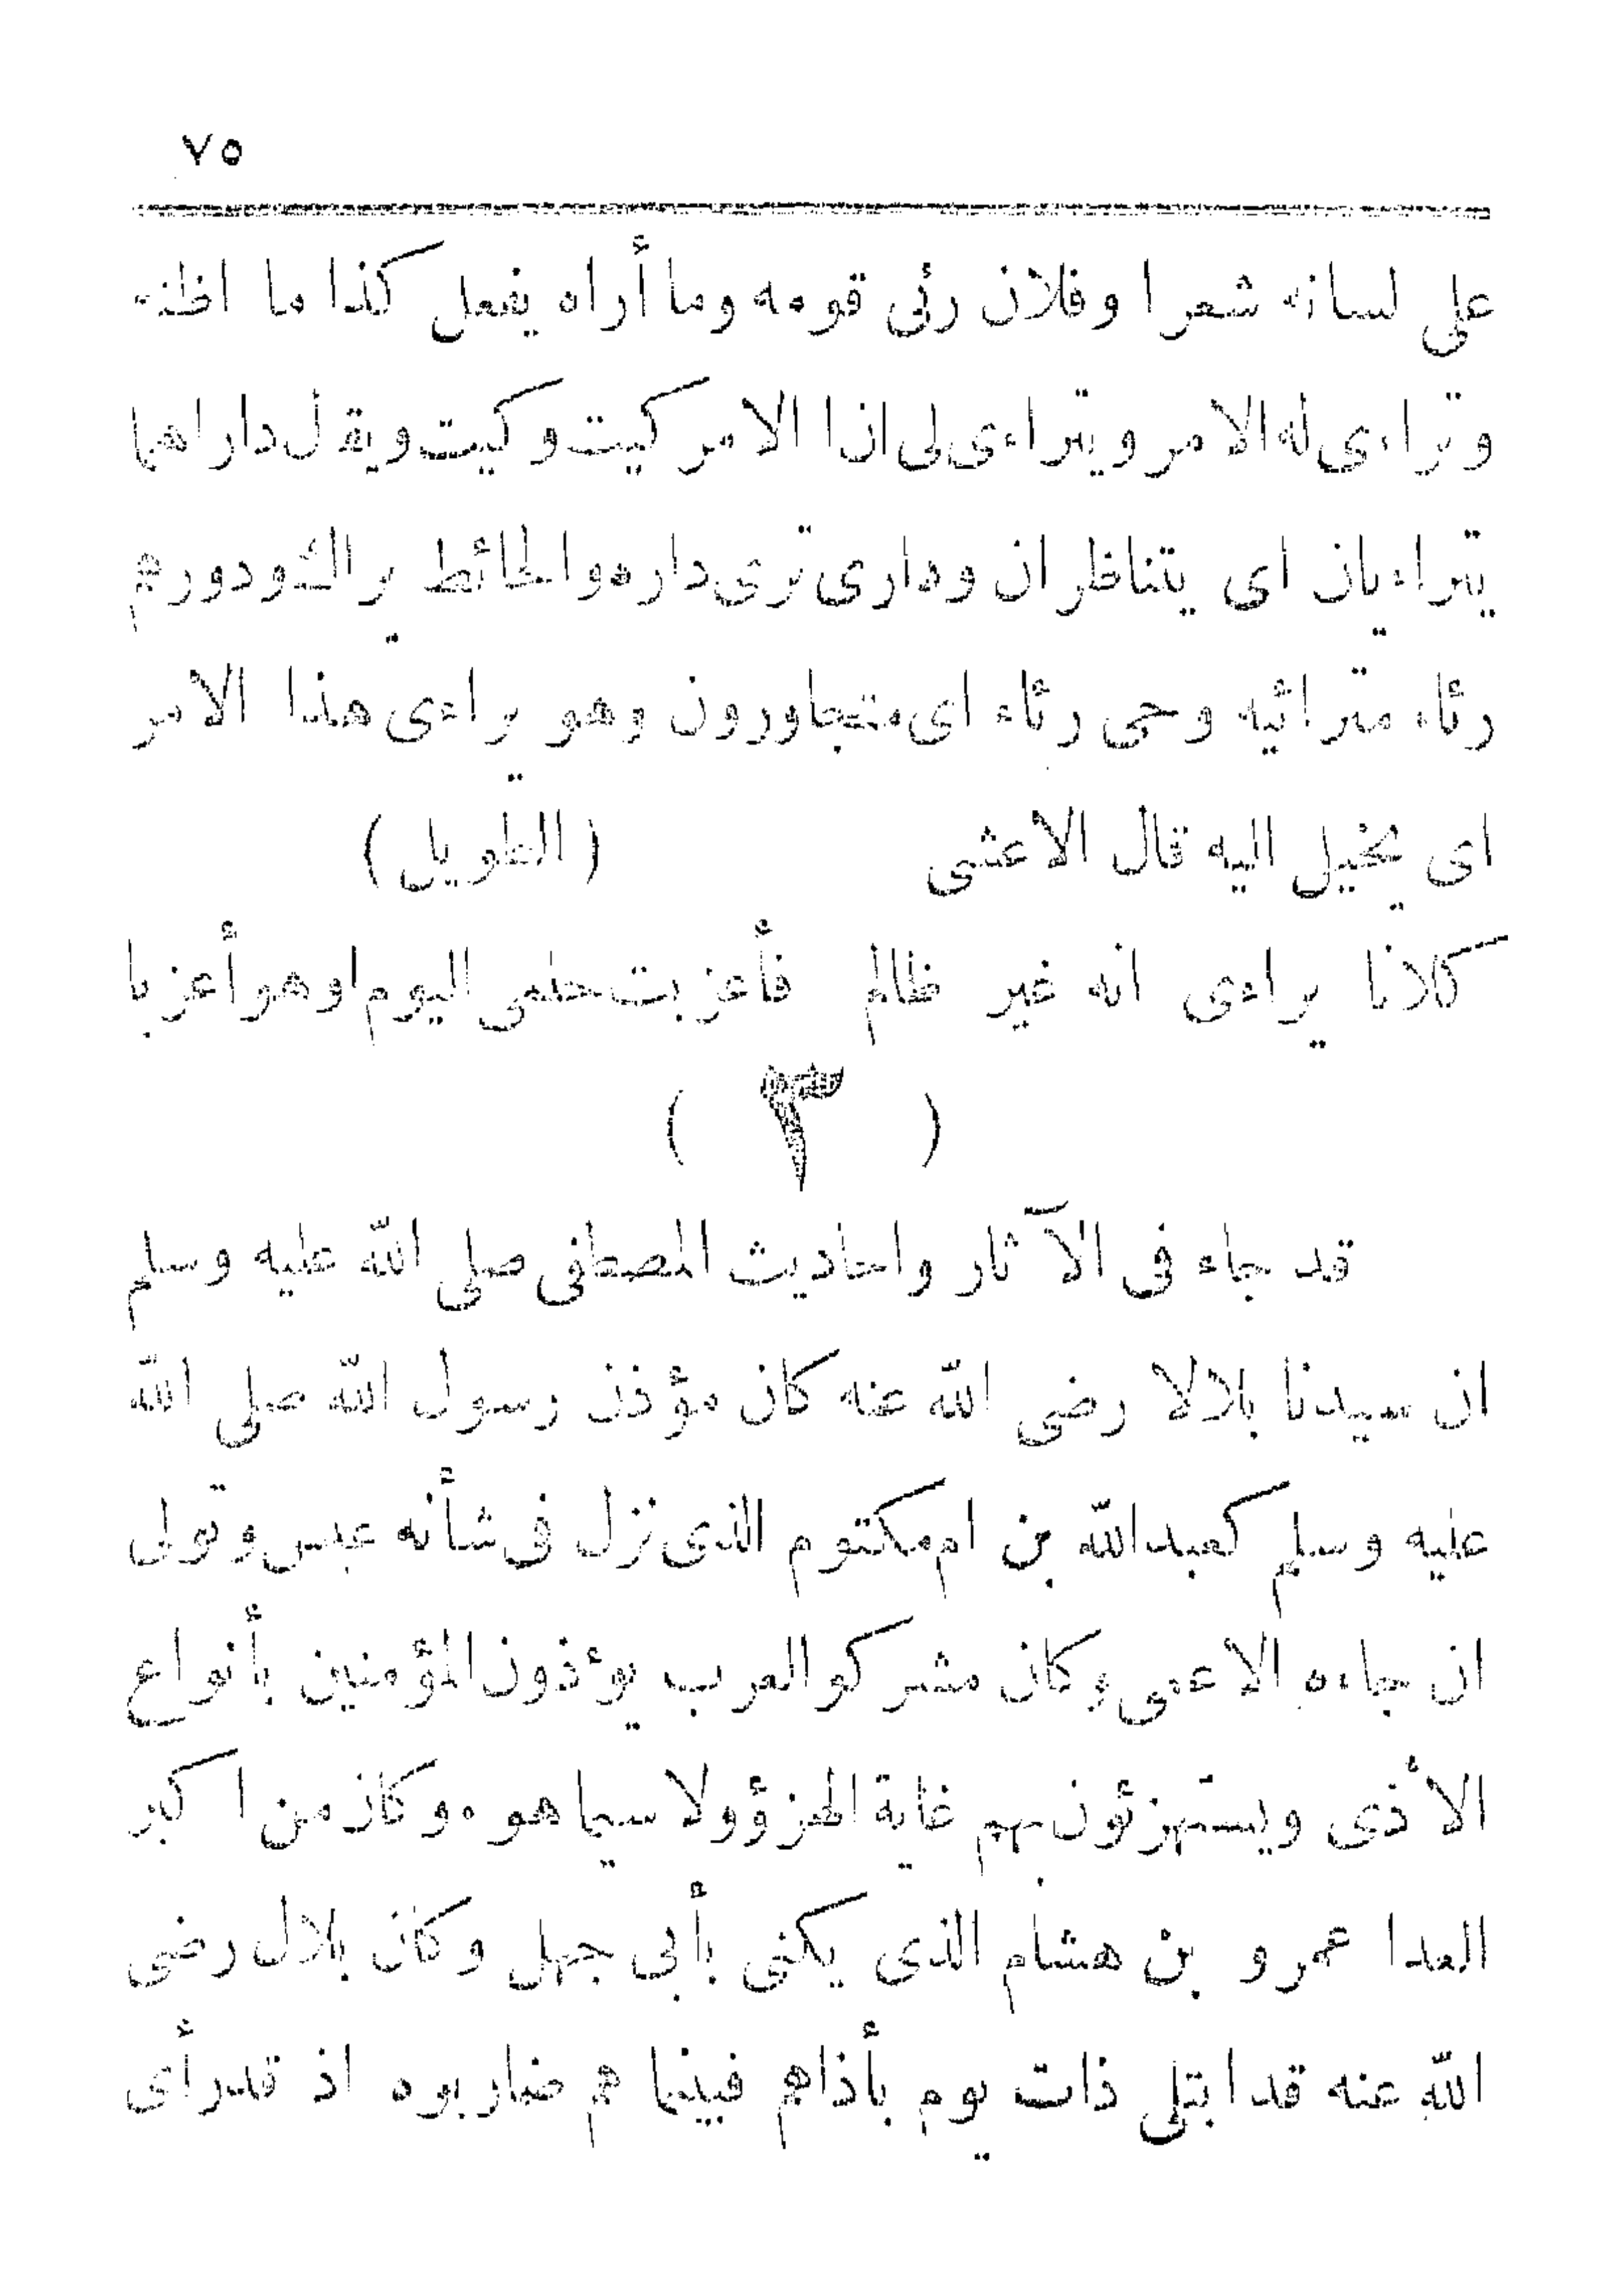 ٧٥
على لسانه شعرا وفلان رئى قومه وما أراه يفعل كذا ما اظنه
وتراءى له الامر ويتراءى لى ان ذا الامر كيت وكيت ويقال داراهما
يتراءيان اى يتناظران ودارى ترى داره والحائط يراك ودورهم
رئاء مترائيه وحى رئاء اى متجاورون وهو يراءى هذا الامر
اى يخيل اليه قال الاعشى (الطويل)
كلانا يراءى انه غير ظالم فأعزبت حلمى اليوم او هو أعزبا
( ٣ )
قد جاء فى الآثار واحاديث المصطفى صلى الله عليه وسلم
ان سيدنا بلالا رضى الله عنه كان مؤذن رسول الله صلى الله
عليه وسلم كعبدالله بن ام مكتوم الذى نزل فى شأنه عبس وتولى
ان جاءه الاعمى وكان مشركو العرب يوءذون المؤمنين بأنواع
الأذى ويستهزئون بهم غاية الهزؤ ولا سيما هوء وكان من اكبر
العدا عمرو بن هشام الذى يكنى بأبى جهل وكان بلال رضى
الله عنه قد ابتلى ذات يوم بأذاهم فبينما هم ضاربوه اذ قد رأى